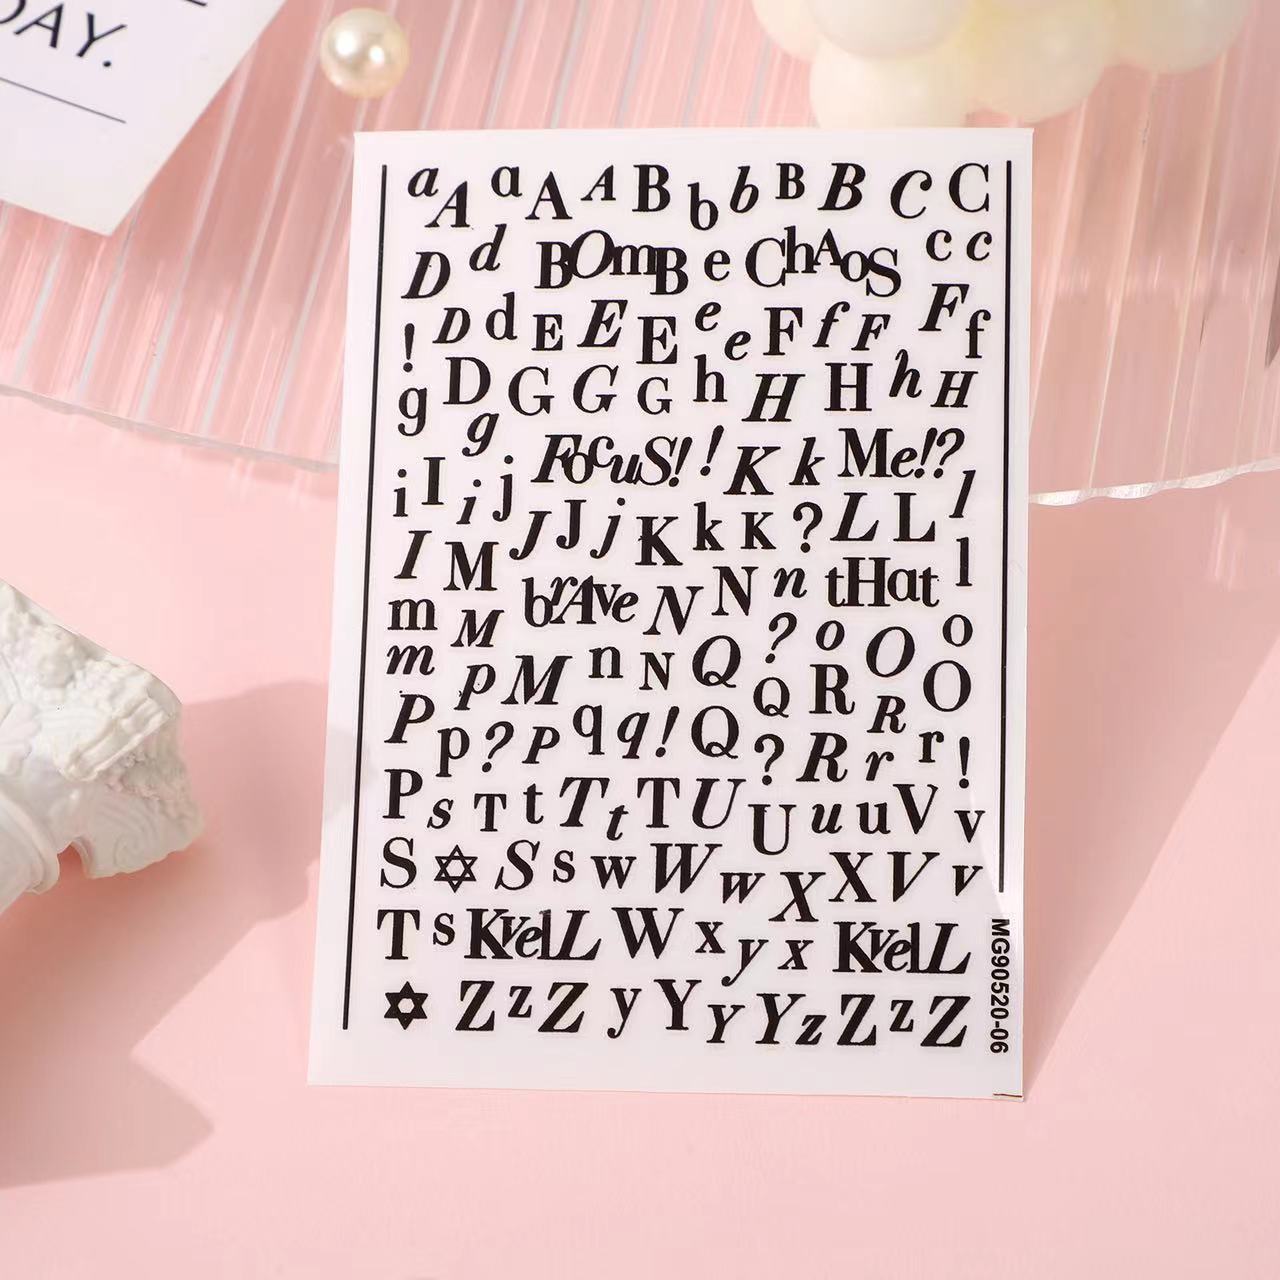 DAY.
a A a A A B b b B B C C
D d BOmBB e ChAoS c c
! D d E E E e e F f F F f
g D G G G h H H h H
g FocuS! ! K k Me!? l
i I i j J J j K k K ? L L
I M brAve N N n tHat l
m M ? o O o
m p M n N Q Q R R O
P p ? P q q ! Q ? R r r !
P s T t T t T U U u u V v
S ✡ S s w W w X X V v
T s KvelL W x y x KvelL
✡ Z z Z y Y Y Y z Z z Z
MG90520-06